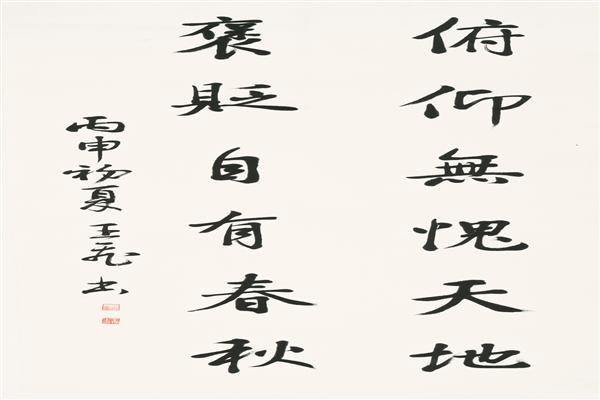 俯仰無愧天地
褒貶自有春秋
丙申初夏王飛書